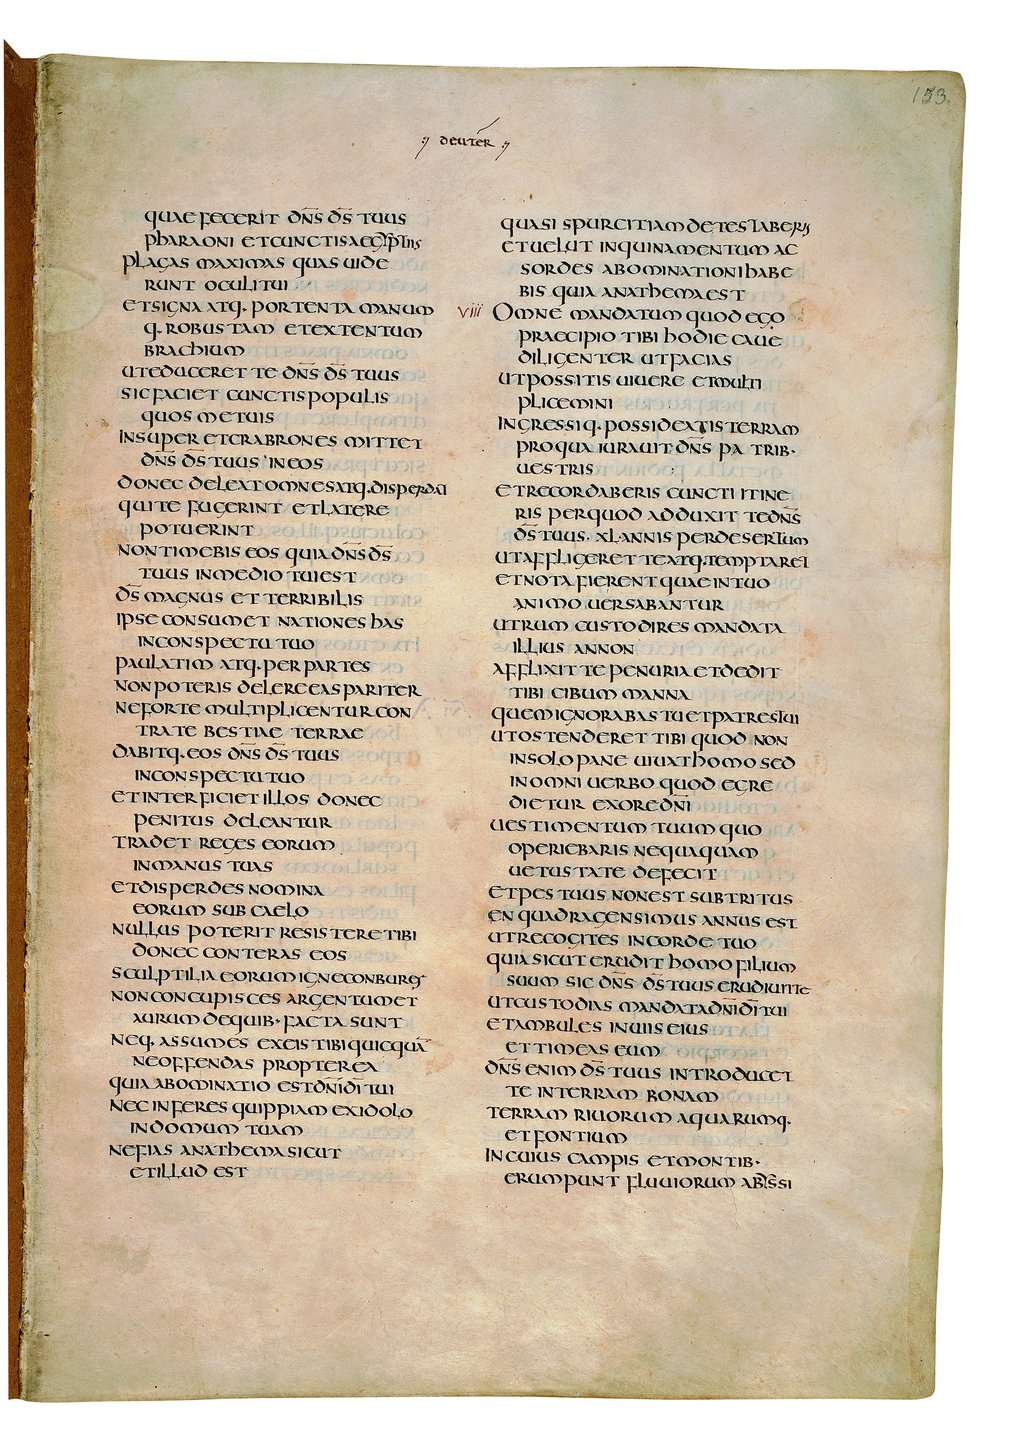 153.
deuter̄
quae fecerit dn̄s d̄s tuus
pharaoni et cunctis aegiptiis
plagas maximas quas uide
runt oculi tui
et signa atq. portenta manum
q. robustam et extentum
brachium
ut educeret te dn̄s d̄s tuus
sic faciet cunctis populis
quos metuis
insuper et crabrones mittet
dn̄s d̄s tuus in eos
donec deleat omnes atq. disperdat
qui te fugerint et latere
potuerint
non timebis eos quia dn̄s d̄s
tuus in medio tui est
d̄s magnus et terribilis
ipse consumet nationes has
in conspectu tuo
paulatim atq. per partes
non poteris delere eas pariter
ne forte multiplicentur con
tra te bestiae terrae
dabitq. eos dn̄s d̄s tuus
in conspectu tuo
et interficiet illos donec
penitus deleantur
tradet reges eorum
in manus tuas
et disperdes nomina
eorum sub caelo
nullus poterit resistere tibi
donec conteras eos
sculptilia eorum igne conbures
non concupisces argentum et
aurum de quib· facta sunt
neq. assumes ex eis tibi quicquā
ne offendas propterea
quia abominatio est dn̄i dī tui
nec inferes quippiam ex idolo
in domum tuam
ne fias anathema sicut
et illud est
quasi spurcitiam detestaberis
et uelut inquinamentum ac
sordes abominationi habe
bis quia anathema est
viii Omne mandatum quod ego
praecipio tibi hodie caue
diligenter ut facias
ut possitis uiuere et multi
plicemini
ingressiq. possideatis terram
pro qua iurauit dn̄s patrib·
uestris
et recordaberis cuncti itine
ris per quod adduxit te dn̄s
d̄s tuus· xl annis per desertum
ut affligeret te atq. temptaret
et nota fierent quae in tuo
animo uersabantur
utrum custodires mandata
illius an non
afflixit te penuria et dedit
tibi cibum manna
quem ignorabas tu et patres tui
ut ostenderet tibi quod non
in solo pane uiuat homo sed
in omni uerbo quod egre
dietur ex ore dn̄i
uestimentum tuum quo
operiebaris nequaquam
uetustate defecit
et pes tuus non est subtritus
en quadragensimus annus est
ut recogites in corde tuo
quia sicut erudit homo filium
suum sic dn̄s d̄s tuus erudiuit te
ut custodias mandata dn̄i dī tui
et ambules in uiis eius
et timeas eum
dn̄s enim d̄s tuus introducet
te in terram bonam
terram riuorum aquarumq.
et fontium
in cuius campis et montib·
erumpunt fluuiorum abissi